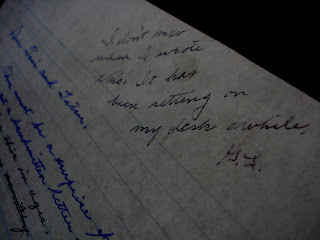 I don't know
when I wrote
this. It has
been setting on
my desk awhile.
Dear and
This must be a surprise
a handwritten letter
in ages.